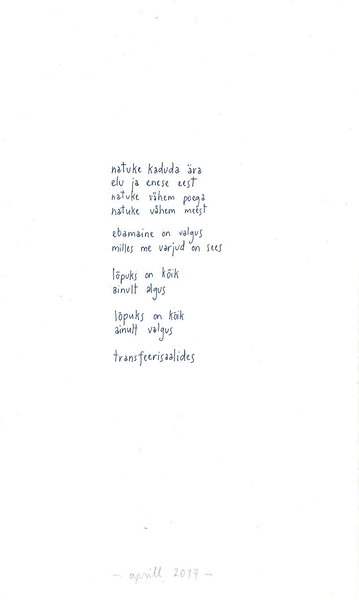 natuke kaduda ära
elu ja enese eest
natuke vähem poega
natuke vähem meest
ebamaine on valgus
milles me varjud on sees
lõpuks on kõik
ainult algus
lõpuks on kõik
ainult valgus
transfeerisaalides
– aprill 2019 –